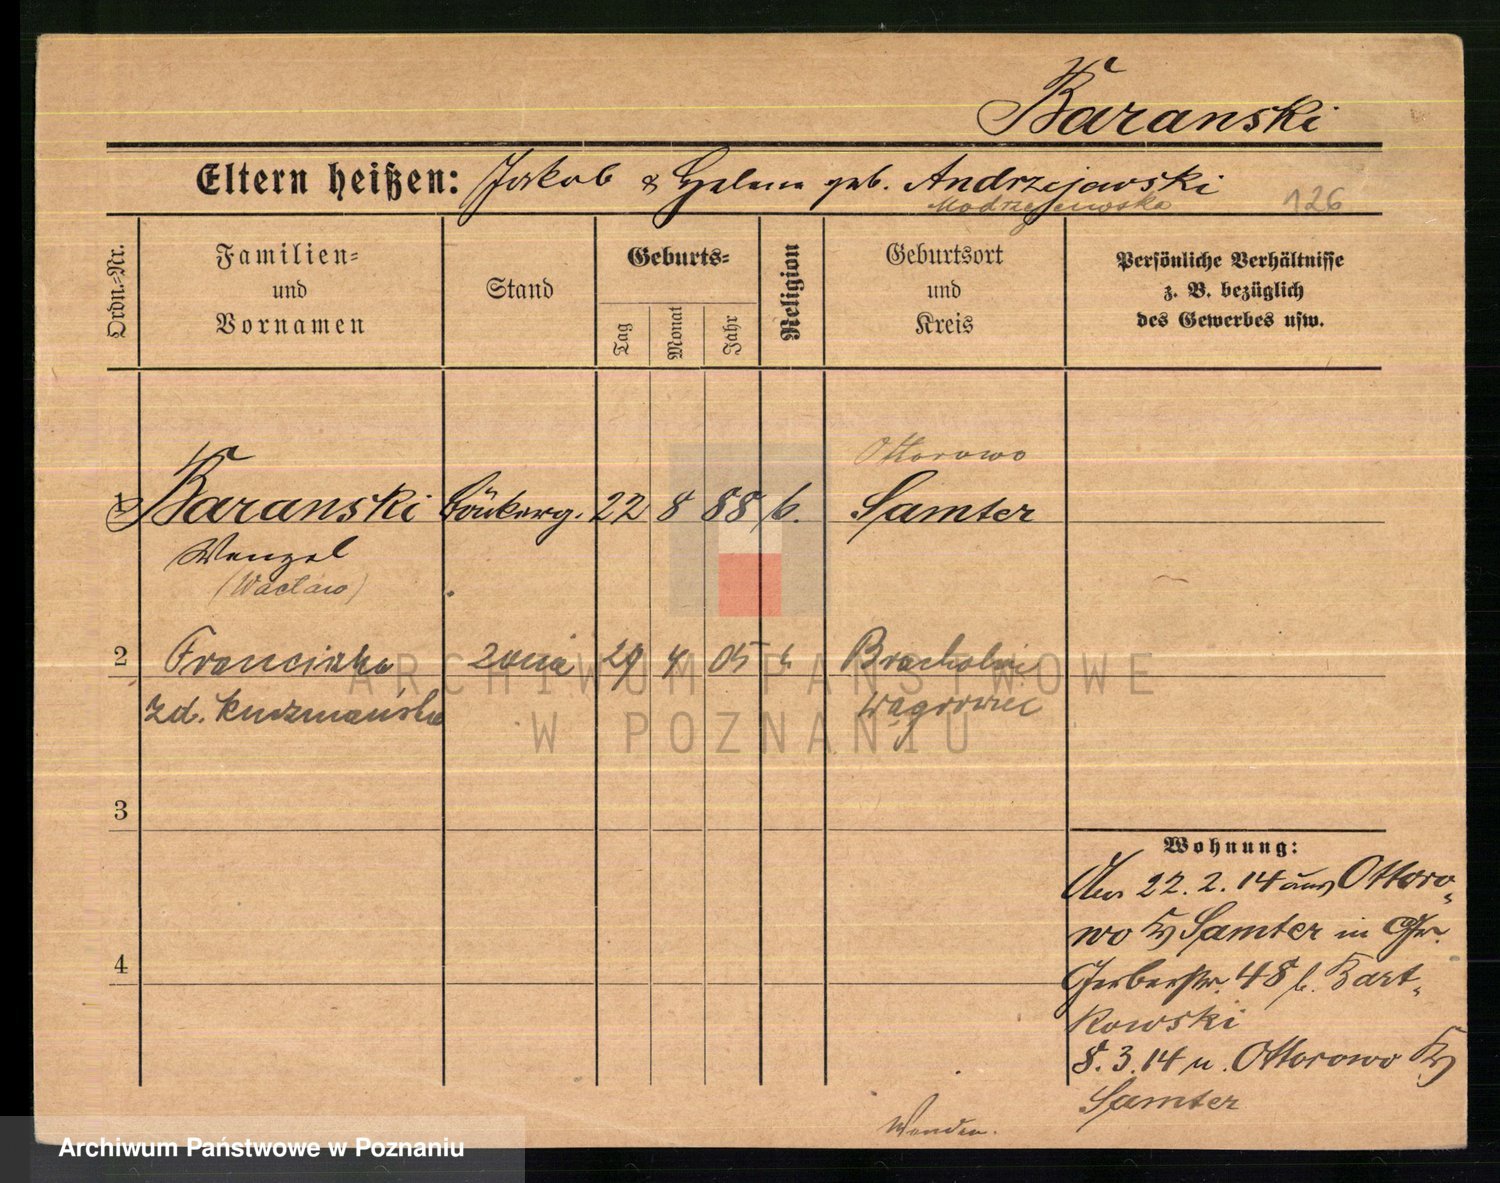 Baranski
Eltern heißen: Jakob & Helene geb. Andrzejewski
Modrzejewska 126
Ordn.-Nr.
Familien-
und
Vornamen
Stand
Geburts-
Tag
Monat
Jahr
Religion
Geburtsort
und
Kreis
Persönliche Verhältnisse
z. B. bezüglich
des Gewerbes usw.
Ottorowo
1 Baranski 22 8 88 k. Samter
Wenzel
(Wacław)
2 Franciszka żona 29 4 05 k
Wągrowiec
zd. Kuczmańska
3
4
Wohnung:
22.2.14 aus Ottoro-
wo Kr Samter in
Gerberstr. 48 b. Bart-
kowski
8.3.14 n. Ottorowo Kr
Samter
Wenden.
ARCHIWUM PAŃSTWOWE
W POZNANIU
Archiwum Państwowe w Poznaniu